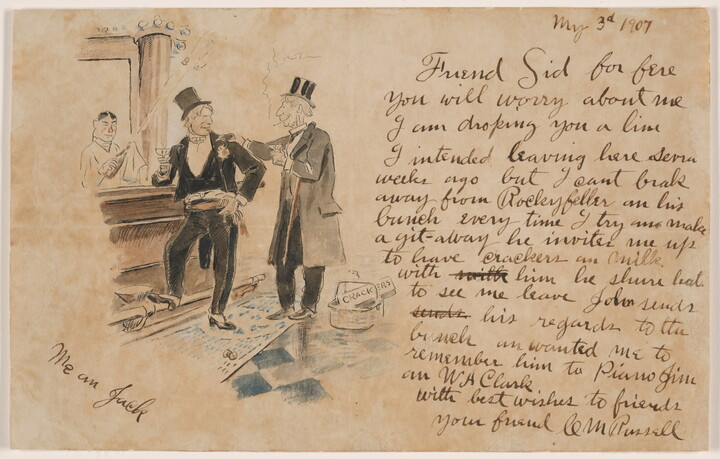 My 3d 1907
Friend Sid for fere
you will worry about me
I am droping you a line
I intended leaving here sevra
weeks ago but I cant brak
away from Rockyfeller an his
bunch every time I try an make
a git-away he invites me up
to have crackers an milk
with milk him he shure hates
to see me leave John sends
sends his regards to the
bunch an wanted me to
remember him to Piano Jim
an W A Clark
with best wishes to friends
your friend C M Russell
CRACKERS
Me an Jack